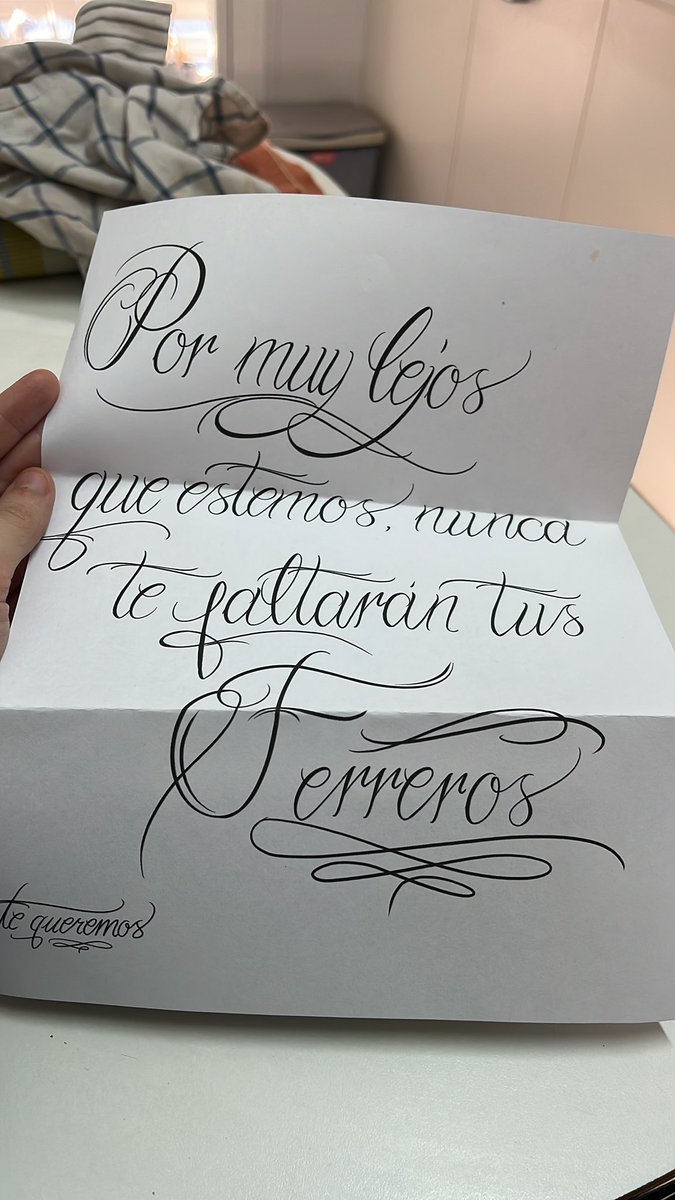 Por muy lejos
que estemos, nunca
te faltarán tus
Ferreros
te queremos